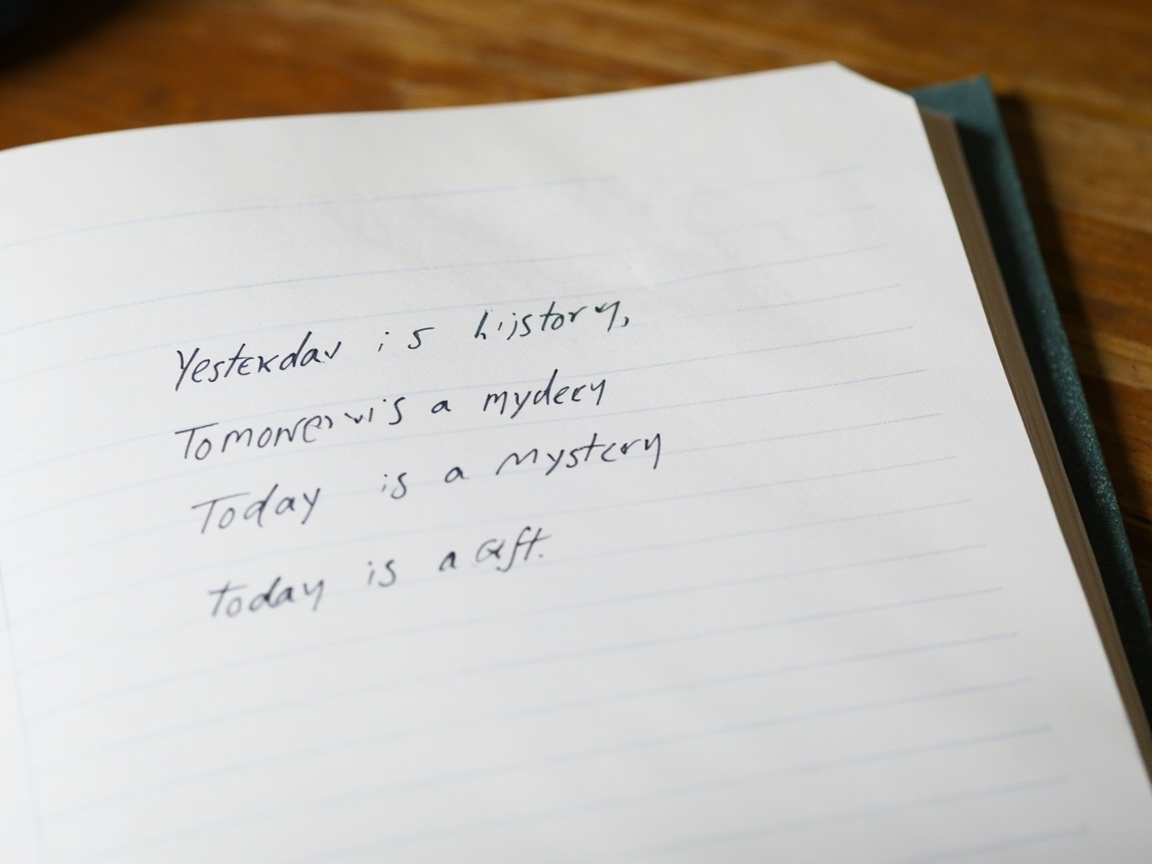 Yesterday is hijstory,
is a mydecy
Today is a mystery
Today is a Gift.